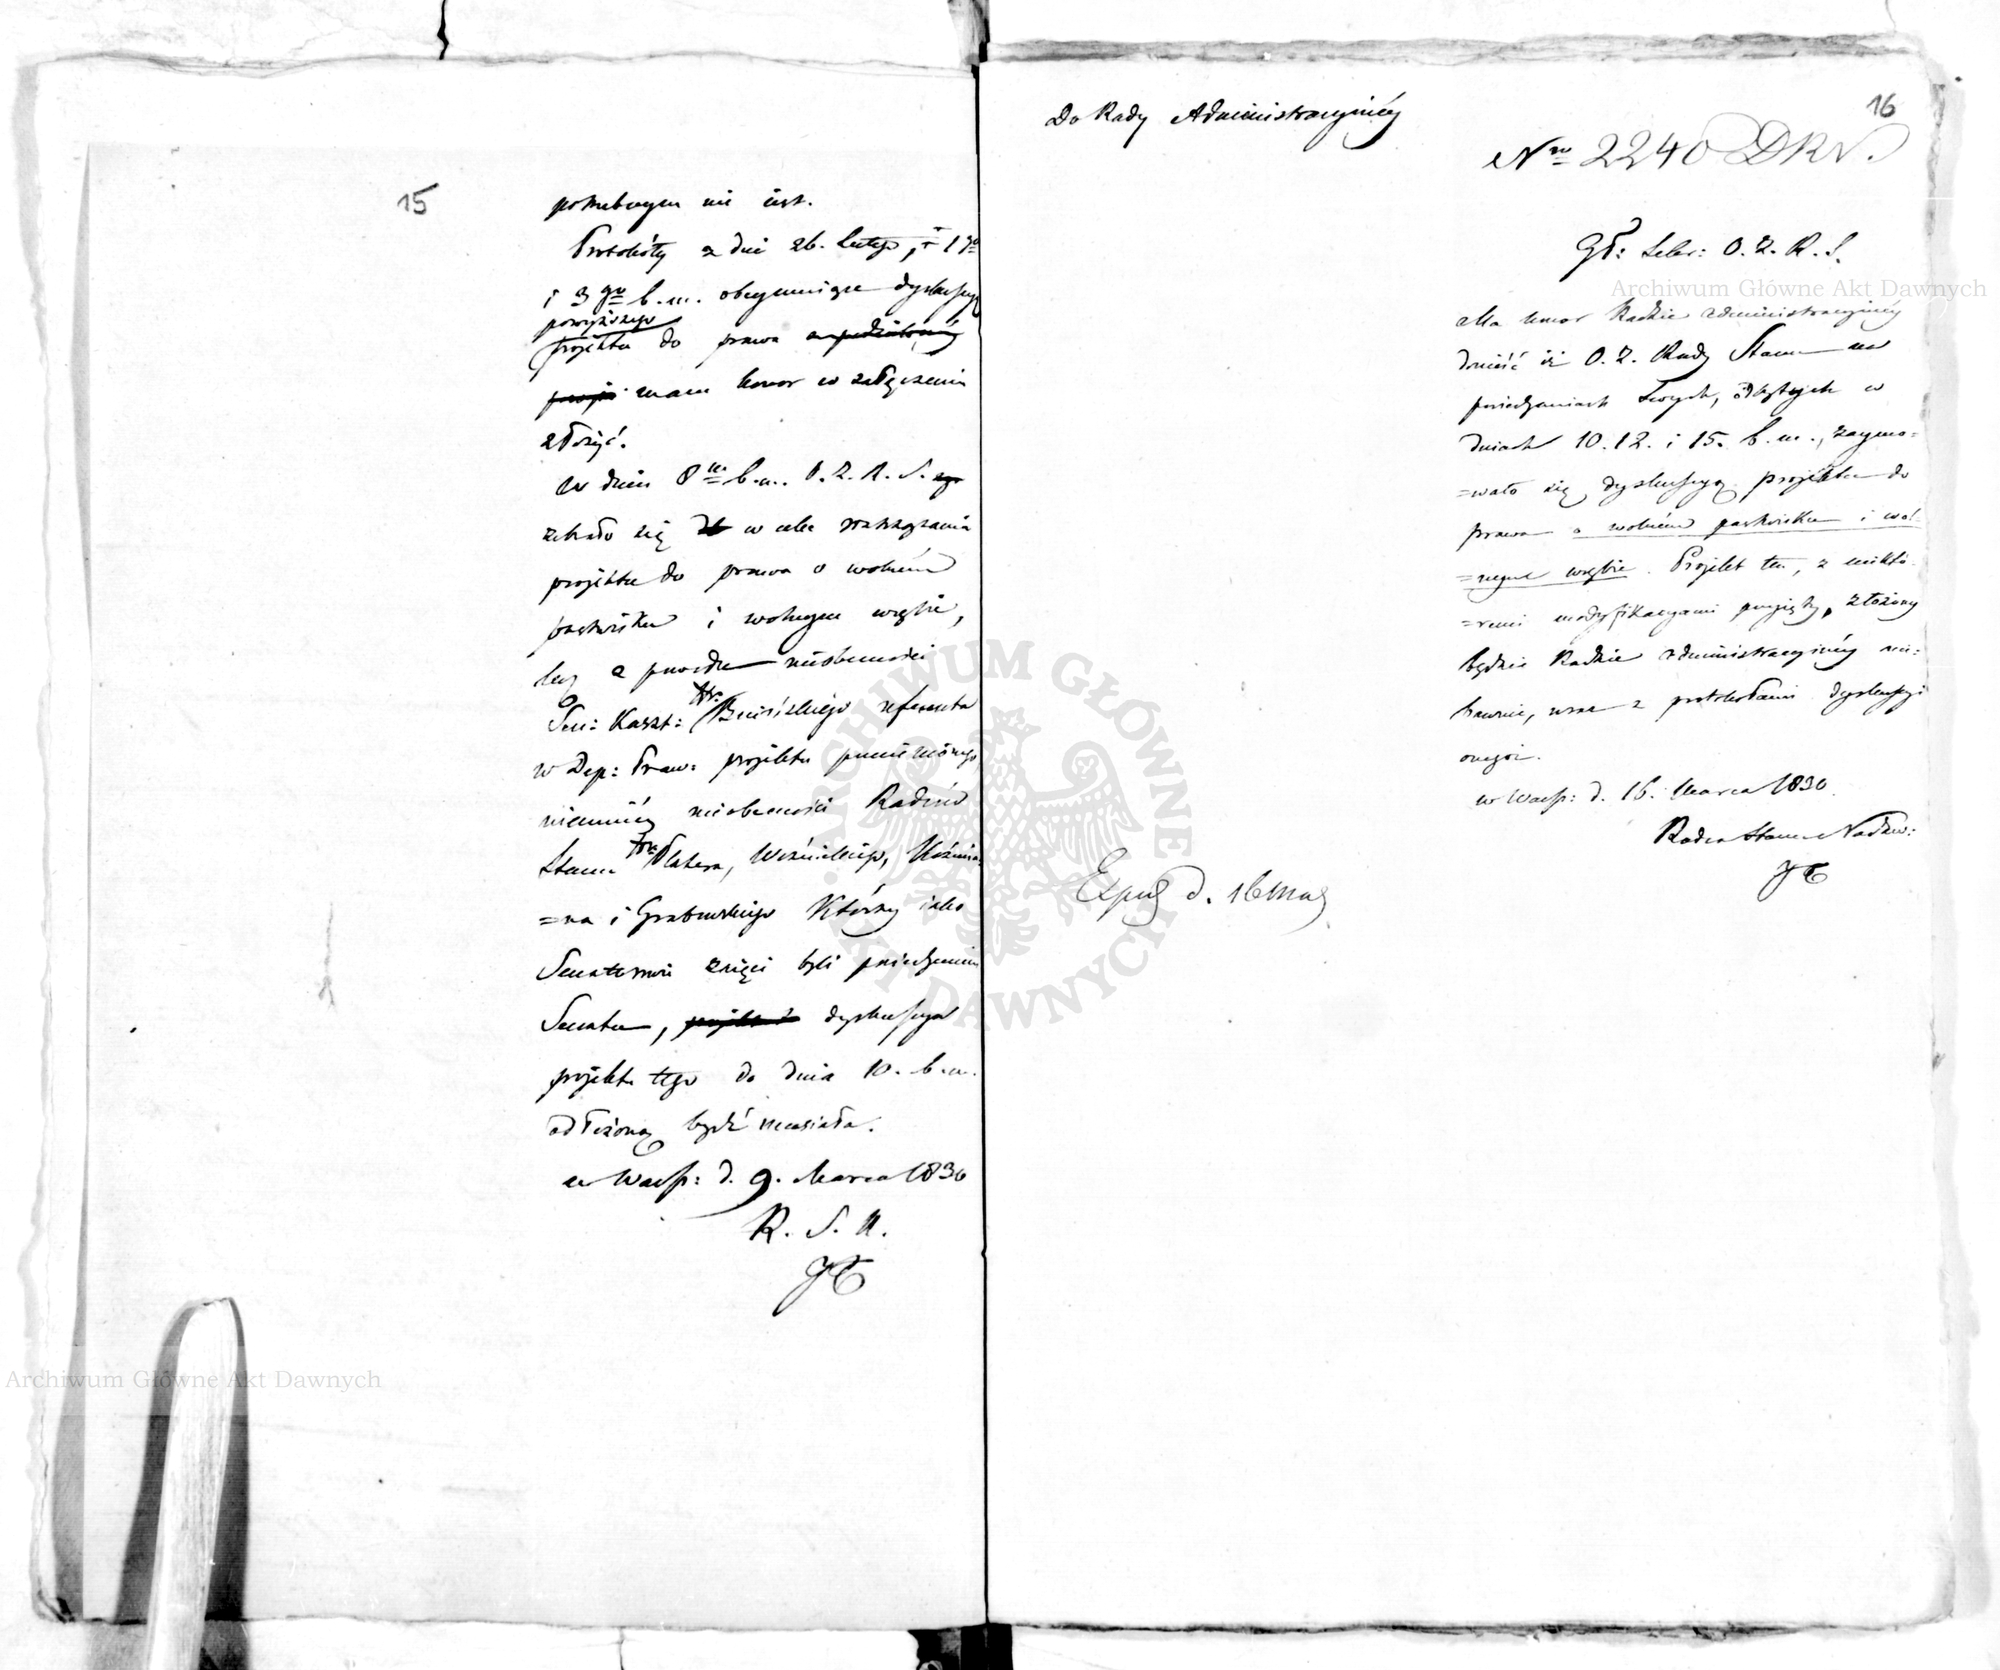 15
potrzebnym nie jest.
Protokóły z dni 26. Lutego, 1go
i 3go b. m. obeymuiące dyskussyą
powyższego
projektu do prawa
mam honor w załączeniu
złożyć.
W dniu 8m b. m. O. Z. R. S.
zebrało się w celu roztrząsania
projektu do prawa o wolném
pastwisku i wolnym wrębie,
lecz z powodu nieobecności
Sen: Kaszt: Hr. Bnińskiego referenta
w Dep: Praw: projektu pomienionego
niemniéy nieobecności Radców
Stanu Hr. Platera, Woźnickiego, Koźmia=
=na i Grabowskiego którzy iako
Senatorowie zaięci byli posiedzeniem
Senatu, dyskussya
projektu tego do dnia 10. b. m.
odłożoną bydź musiała.
w Warsz: d. 9. Marca 1830
R. S. N.
16
Do Rady Administracyinéy
Nro 2240 DRN.
Gł: Sekr: O. Z. R. S.
Ma honor Radzie Administracyinéy
donieść iż O. Z. Rady Stanu na
posiedzeniach swych, odbytych w
dniach 10. 12. i 15. b. m., zaymo=
=wało się dyskussyą projektu do
prawa o wolném pastwisku i wol=
=nym wrębie. Projekt ten, z niektó=
=remi modyfikacyami przyięty, złożony
będzie Radzie Administracyinéy nie=
bawnie, wraz z protokołami dyskussyi
onegoż.
w Warsz: d. 16. Marca 1830.
Radca Stanu Nadzw:
Exped d. 16 Mar
Archiwum Główne Akt Dawnych
Archiwum Główne Akt Dawnych
ARCHIWUM GŁÓWNE AKT DAWNYCH